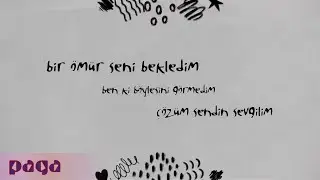 bir ömür seni bekledim
ben ki böylesini görmedim
çözüm sendin sevgilim
paga